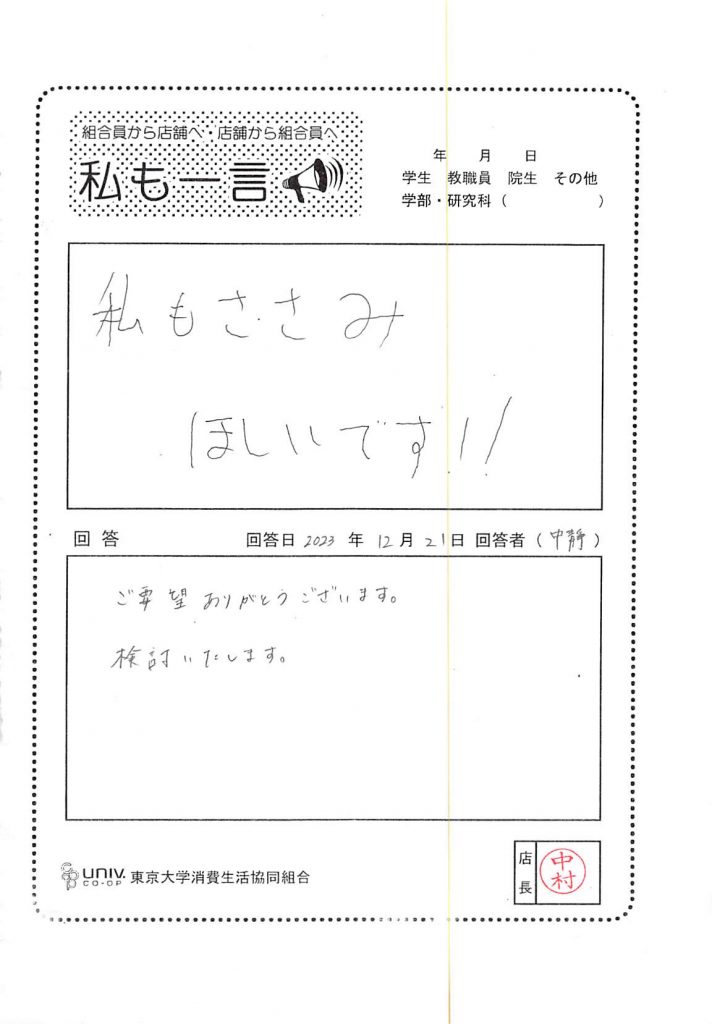 組合員から店舗へ 店舗から組合員へ
私も一言
年 月 日
学生 教職員 院生 その他
学部・研究科( )
私もささみ
ほしいです!!
回答 回答日 2023 年 12 月 21 日 回答者 ( 中静 )
ご要望ありがとうございます。
検討いたします。
UNIV. CO-OP 東京大学消費生活協同組合
店長 中村